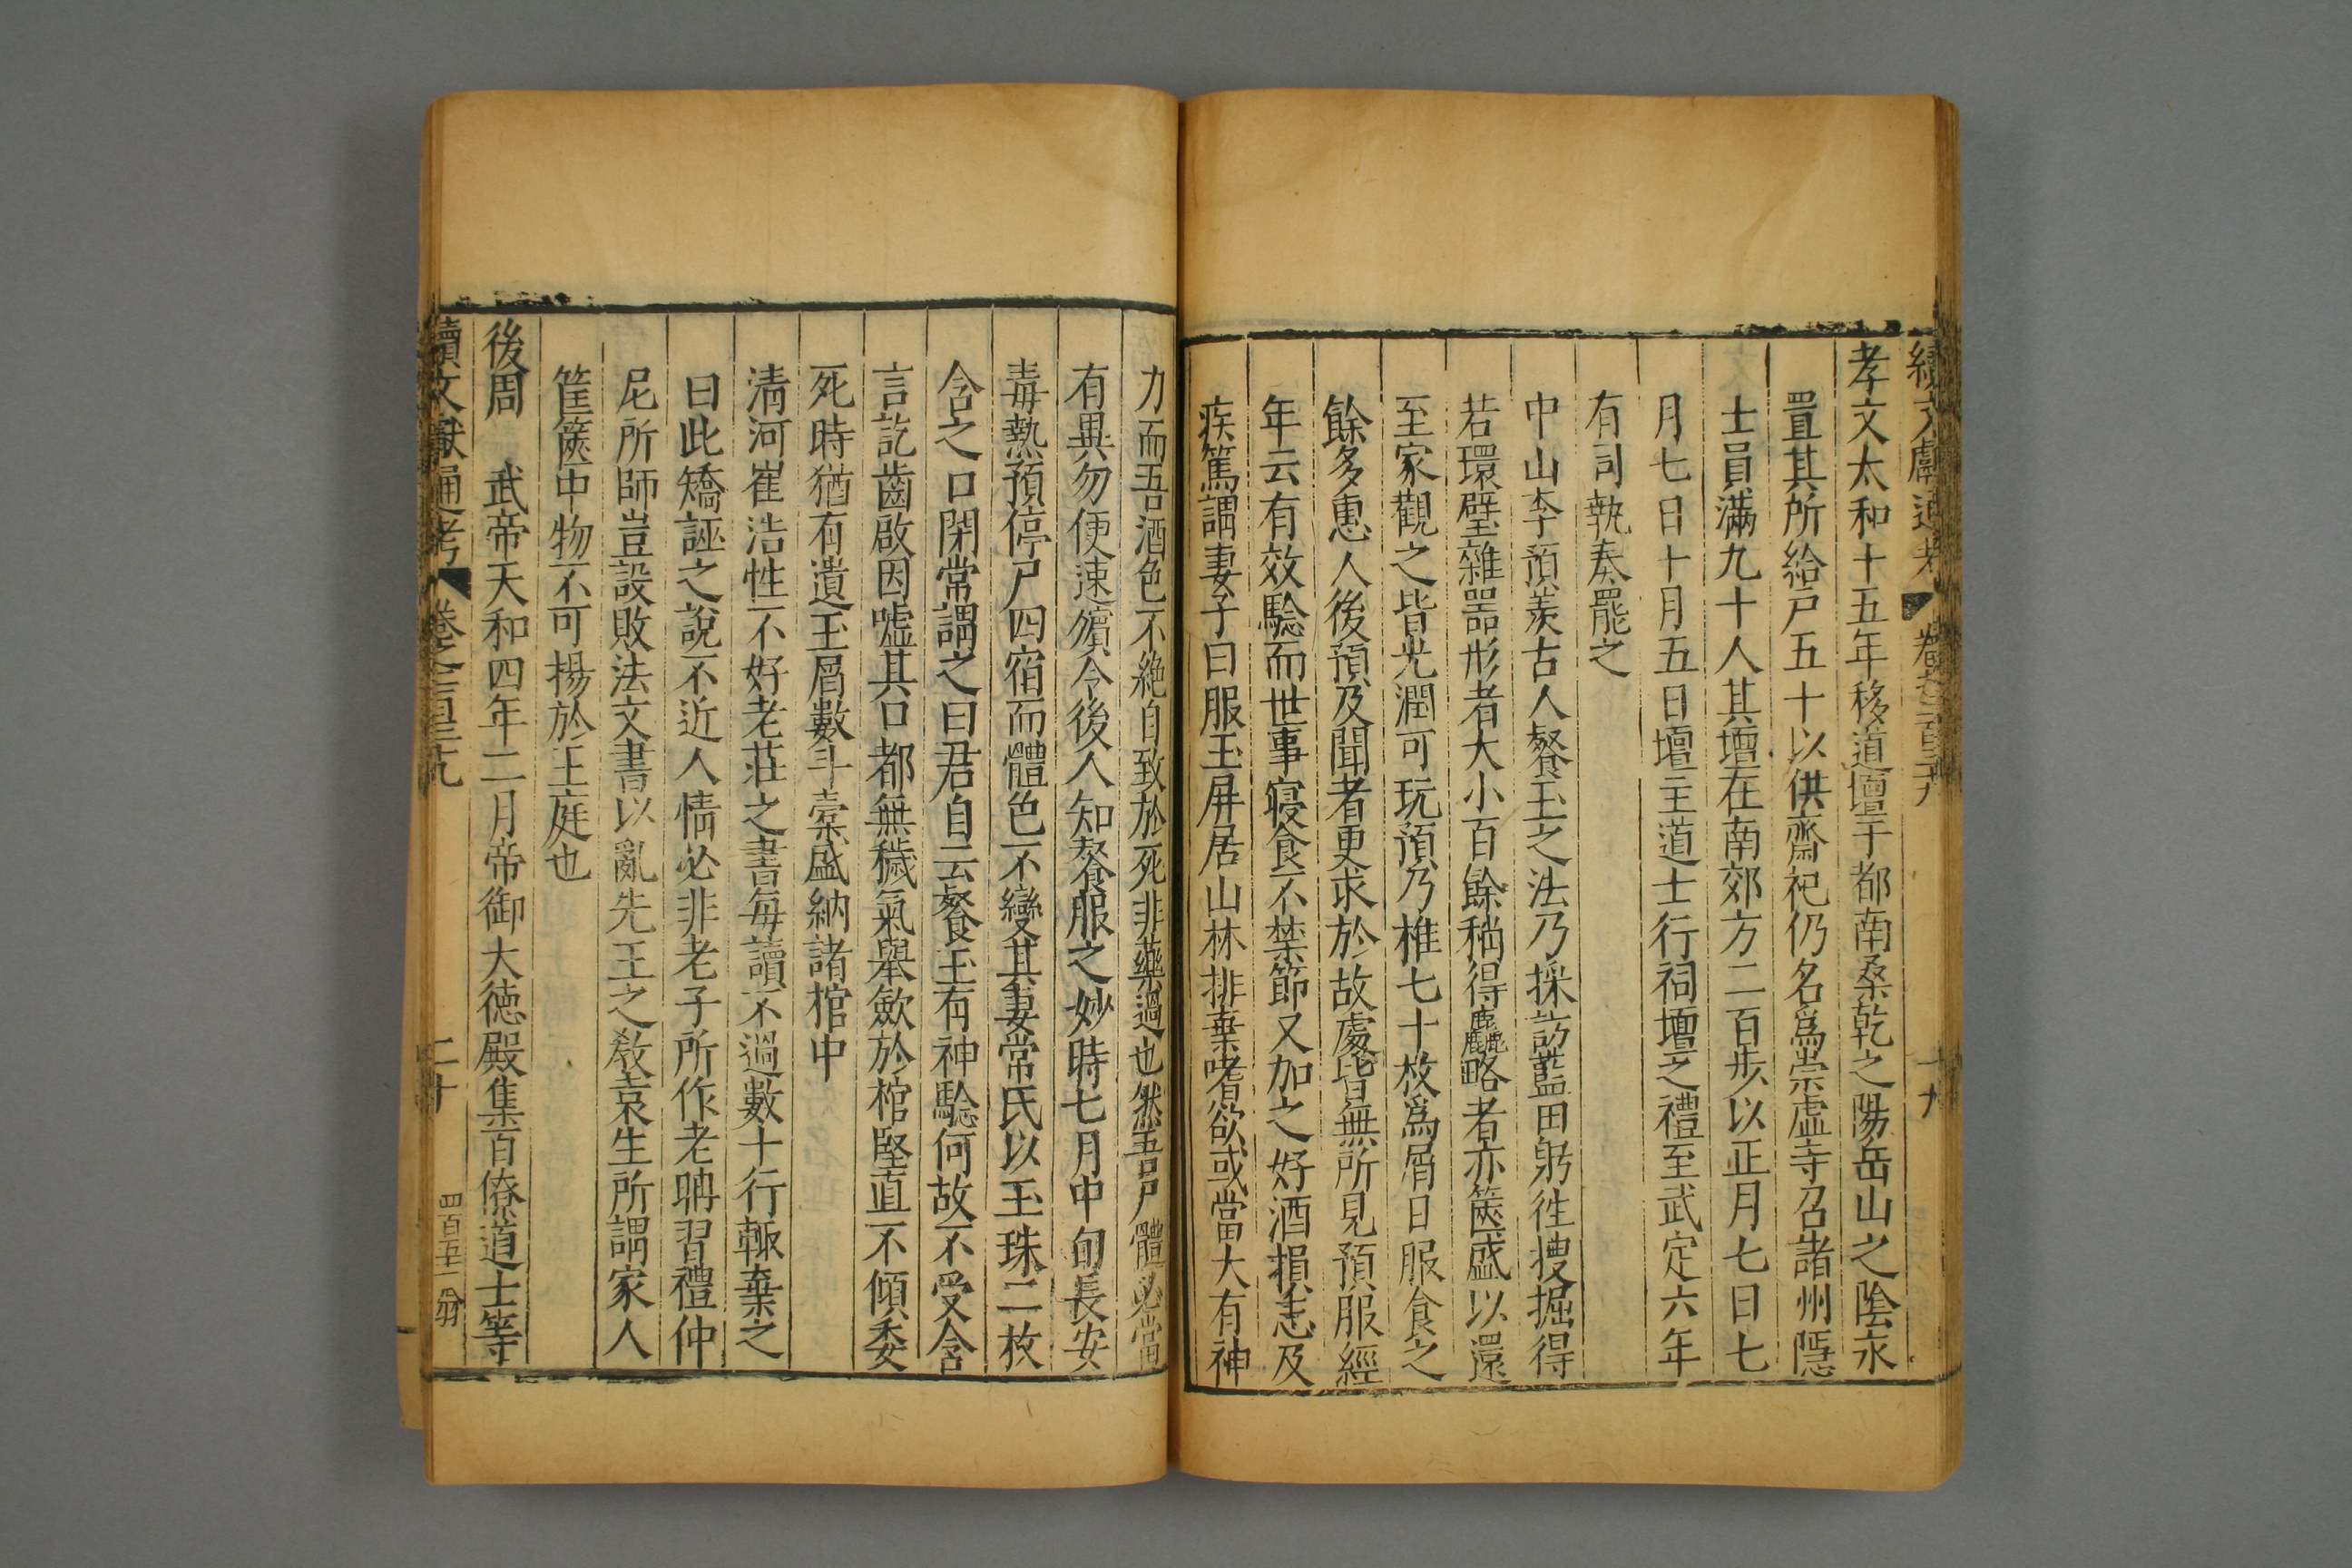 續文獻通考
卷之二百三九
十九
孝文太和十五年移道壇于都南桑乾之陽岳山之陰永
置其所給戸五十以供齋祀仍名爲崇虛寺召諸州隱
士員滿九十人其壇在南郊方二百步以正月七日七
月七日十月五日壇主道士行祠壇之禮至武定六年
有司執奏罷之
中山李預羨古人餐玉之法乃採訪藍田躬徃搜掘得
若環璧雜噐形者大小百餘稍得麤略者亦篋盛以還
至家觀之皆光潤可玩預乃椎七十枚爲屑日服食之
餘多惠人後預及聞者更求於故處皆無所見預服經
年云有效驗而世事寝食不禁節又加之好酒損恚及
疾篤謂妻子曰服玉屏居山林排棄嗜欲或當大有神
力而吾酒色不絶自致於死非藥過也然吾尸體必當
有異勿便速殯令後人知餐服之妙時七月中旬長安
毒熱預停尸四宿而體色不變其妻常氏以玉珠二枚
含之口閉常謂之曰君自云餐玉有神驗何故不受含
言訖齒啟因噓其口都無穢氣舉歛於棺堅直不傾委
死時猶有遺玉屑數斗橐盛納諸棺中
清河崔浩性不好老莊之書每讀不過數十行輙棄之
曰此矯誣之說不近人情必非老子所作老聃習禮仲
尼所師豈設敗法文書以亂先王之敎袁生所謂家人
筐篋中物不可揚於王庭也
後周　武帝天和四年二月帝御大德殿集百僚道士等
續文獻通考
卷之二百三九
二十
四百五十一